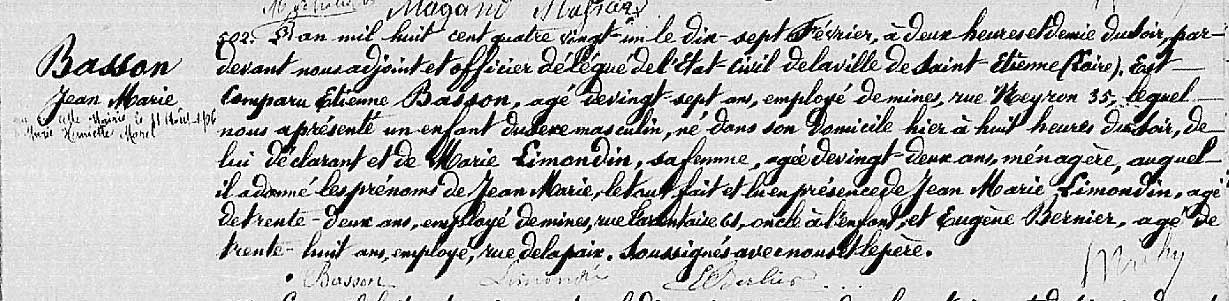 Magand
502. L'an mil huit cent quatre vingt-un le dix-sept Février, à deux heures et demie du soir, par-
devant nous adjoint et officier délégué de l'Etat-Civil de la ville de Saint-Etienne (Loire), Est
Basson
Jean Marie
comparu Etienne Basson, agé de vingt-sept ans, employé de mines, rue Neyron 35, lequel
nous a présenté un enfant du sexe masculin, né dans son domicile hier à huit heures du soir, de
lui déclarant et de Marie Limondin, sa femme, agée de vingt-deux ans, ménagère, auquel
il a donné les prénoms de Jean Marie, le tout fait et lu en présence de Jean Marie Limondin, agé
de trente-deux ans, employé de mines, rue Tarentaise 61, oncle à l'enfant, et Eugène Bernier, agé de
trente-huit ans, employé, rue de la paix. Soussignés avec nous et le père.
Basson